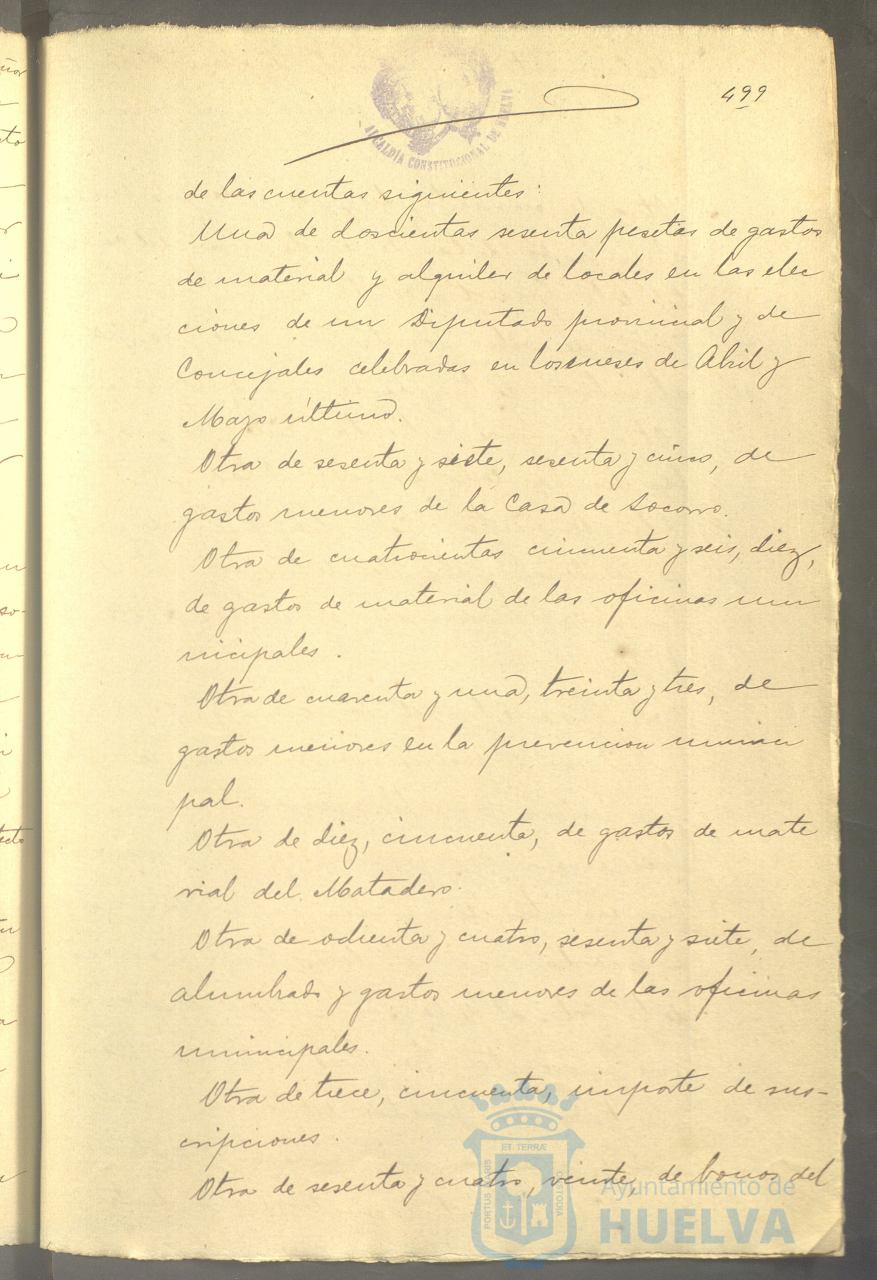 ALCALDÍA CONSTITUCIONAL DE HUELVA
499
de las cuentas siguientes:
Una de doscientas sesenta pesetas de gastos
de material y alquiler de locales en las elec
ciones de un Diputado provincial y de
Concejales celebradas en los meses de Abril y
Mayo último.
Otra de sesenta y siete, sesenta y cinco, de
gastos menores de la Casa de Socorro.
Otra de cuatrocientas cincuenta y seis, diez,
de gastos de material de las oficinas mu
nicipales.
Otra de cuarenta y una, treinta y tres, de
gastos menores en la prevencion munici
pal.
Otra de diez, cincuenta, de gastos de mate
rial del Matadero.
Otra de ochenta y cuatro, sesenta y siete, de
alumbrado y gastos menores de las oficinas
municipales.
Otra de trece, cincuenta, importe de sus-
cripciones.
Otra de sesenta y cuatro, veinte, de bonos del
ET TERRÆ
PORTUS MARIS
CUSTODIA
Ayuntamiento de
HUELVA